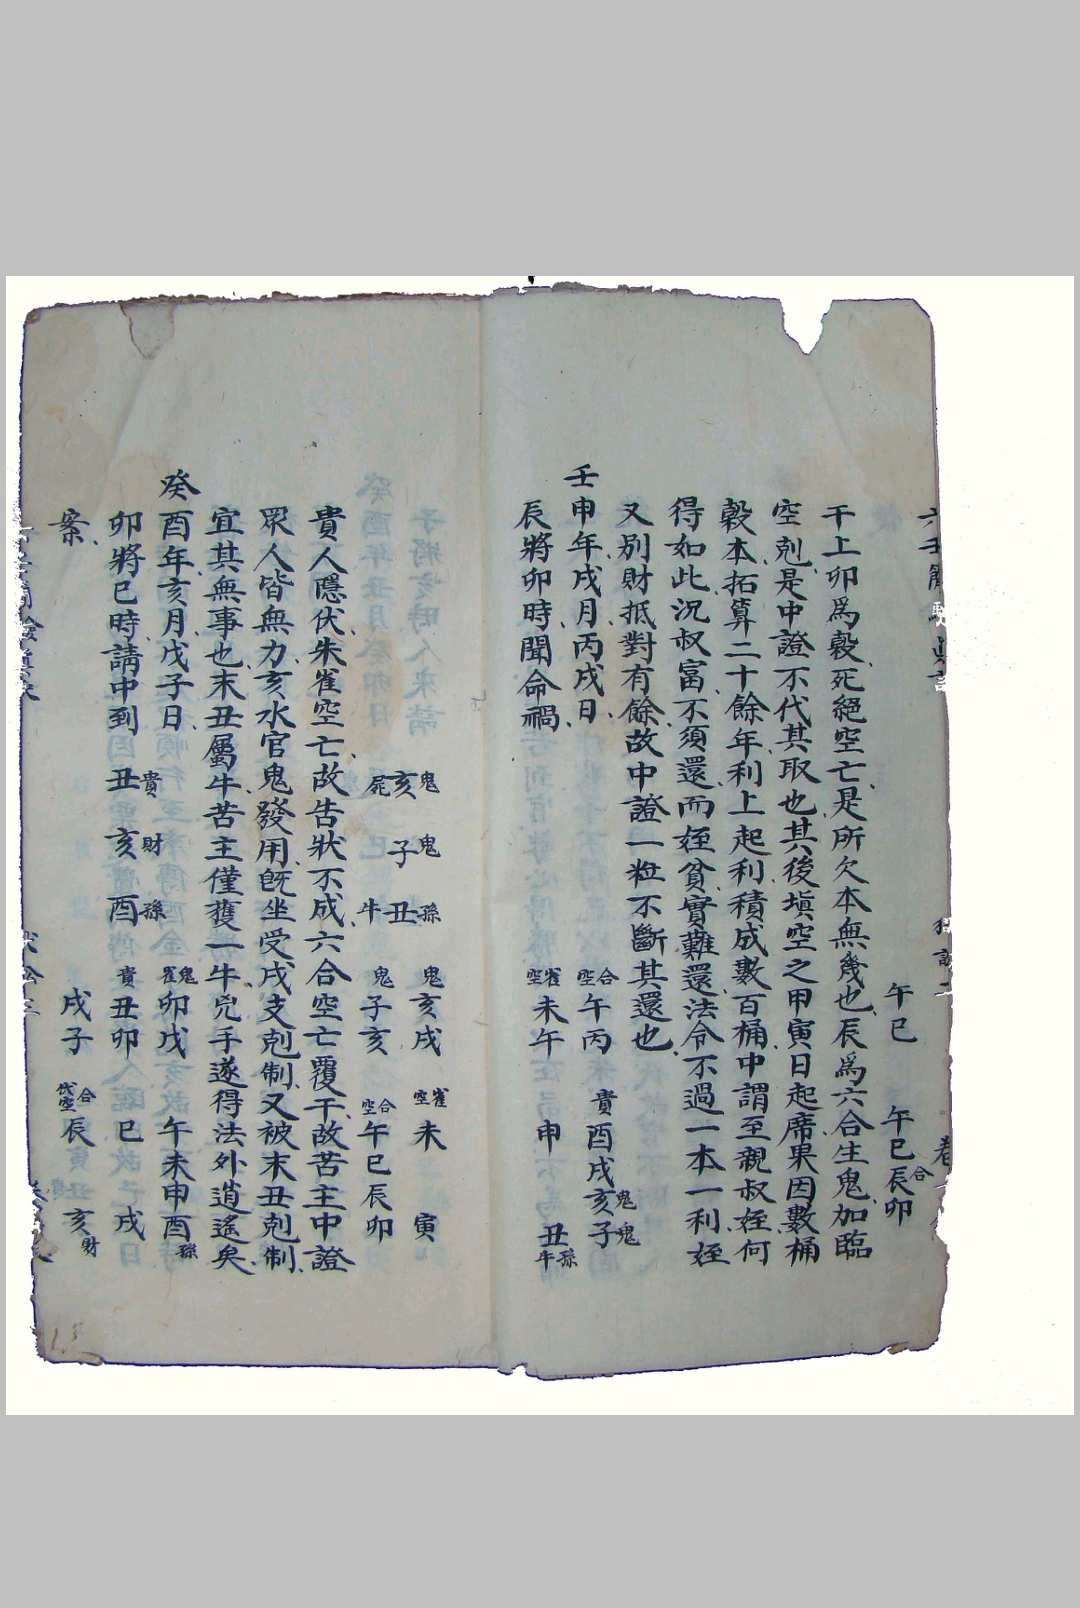 午巳　午巳辰合卯
干上卯爲穀死絕空亡是所欠本無幾也辰爲六合生鬼加臨
空剋是中證不代其取也其後塡空之甲寅日起席果因數桶
穀本拓算二十餘年利上起利積成數百桶中謂至親叔姪何
得如此況叔富不須還而姪貧實難還法令不過一本一利姪
又別財抵對有餘故中證一粒不斷其還也
壬申年戌月丙戌日　合空午丙　貴酉戌亥鬼子鬼
辰將卯時聞命禍　雀空未午　申　丑孫牛
鬼亥屍　鬼亥戌　雀空未　寅
鬼子　鬼子亥　合空午巳辰卯
孫丑牛
貴人隱伏朱雀空亡故告狀不成六合空亡覆干故苦主中證
眾人皆無力亥水官鬼發用旣坐受戌支剋制又被末丑剋制
宜其無事也末丑屬牛苦主僅獲一牛兇手遂得法外逍遙矣
癸酉年亥月戊子日　鬼雀卯戌　午未申酉孫
卯將巳時請中到　丑貴　亥財　酉孫　貴丑卯　巳　戌
案　戌子　合空辰　亥財